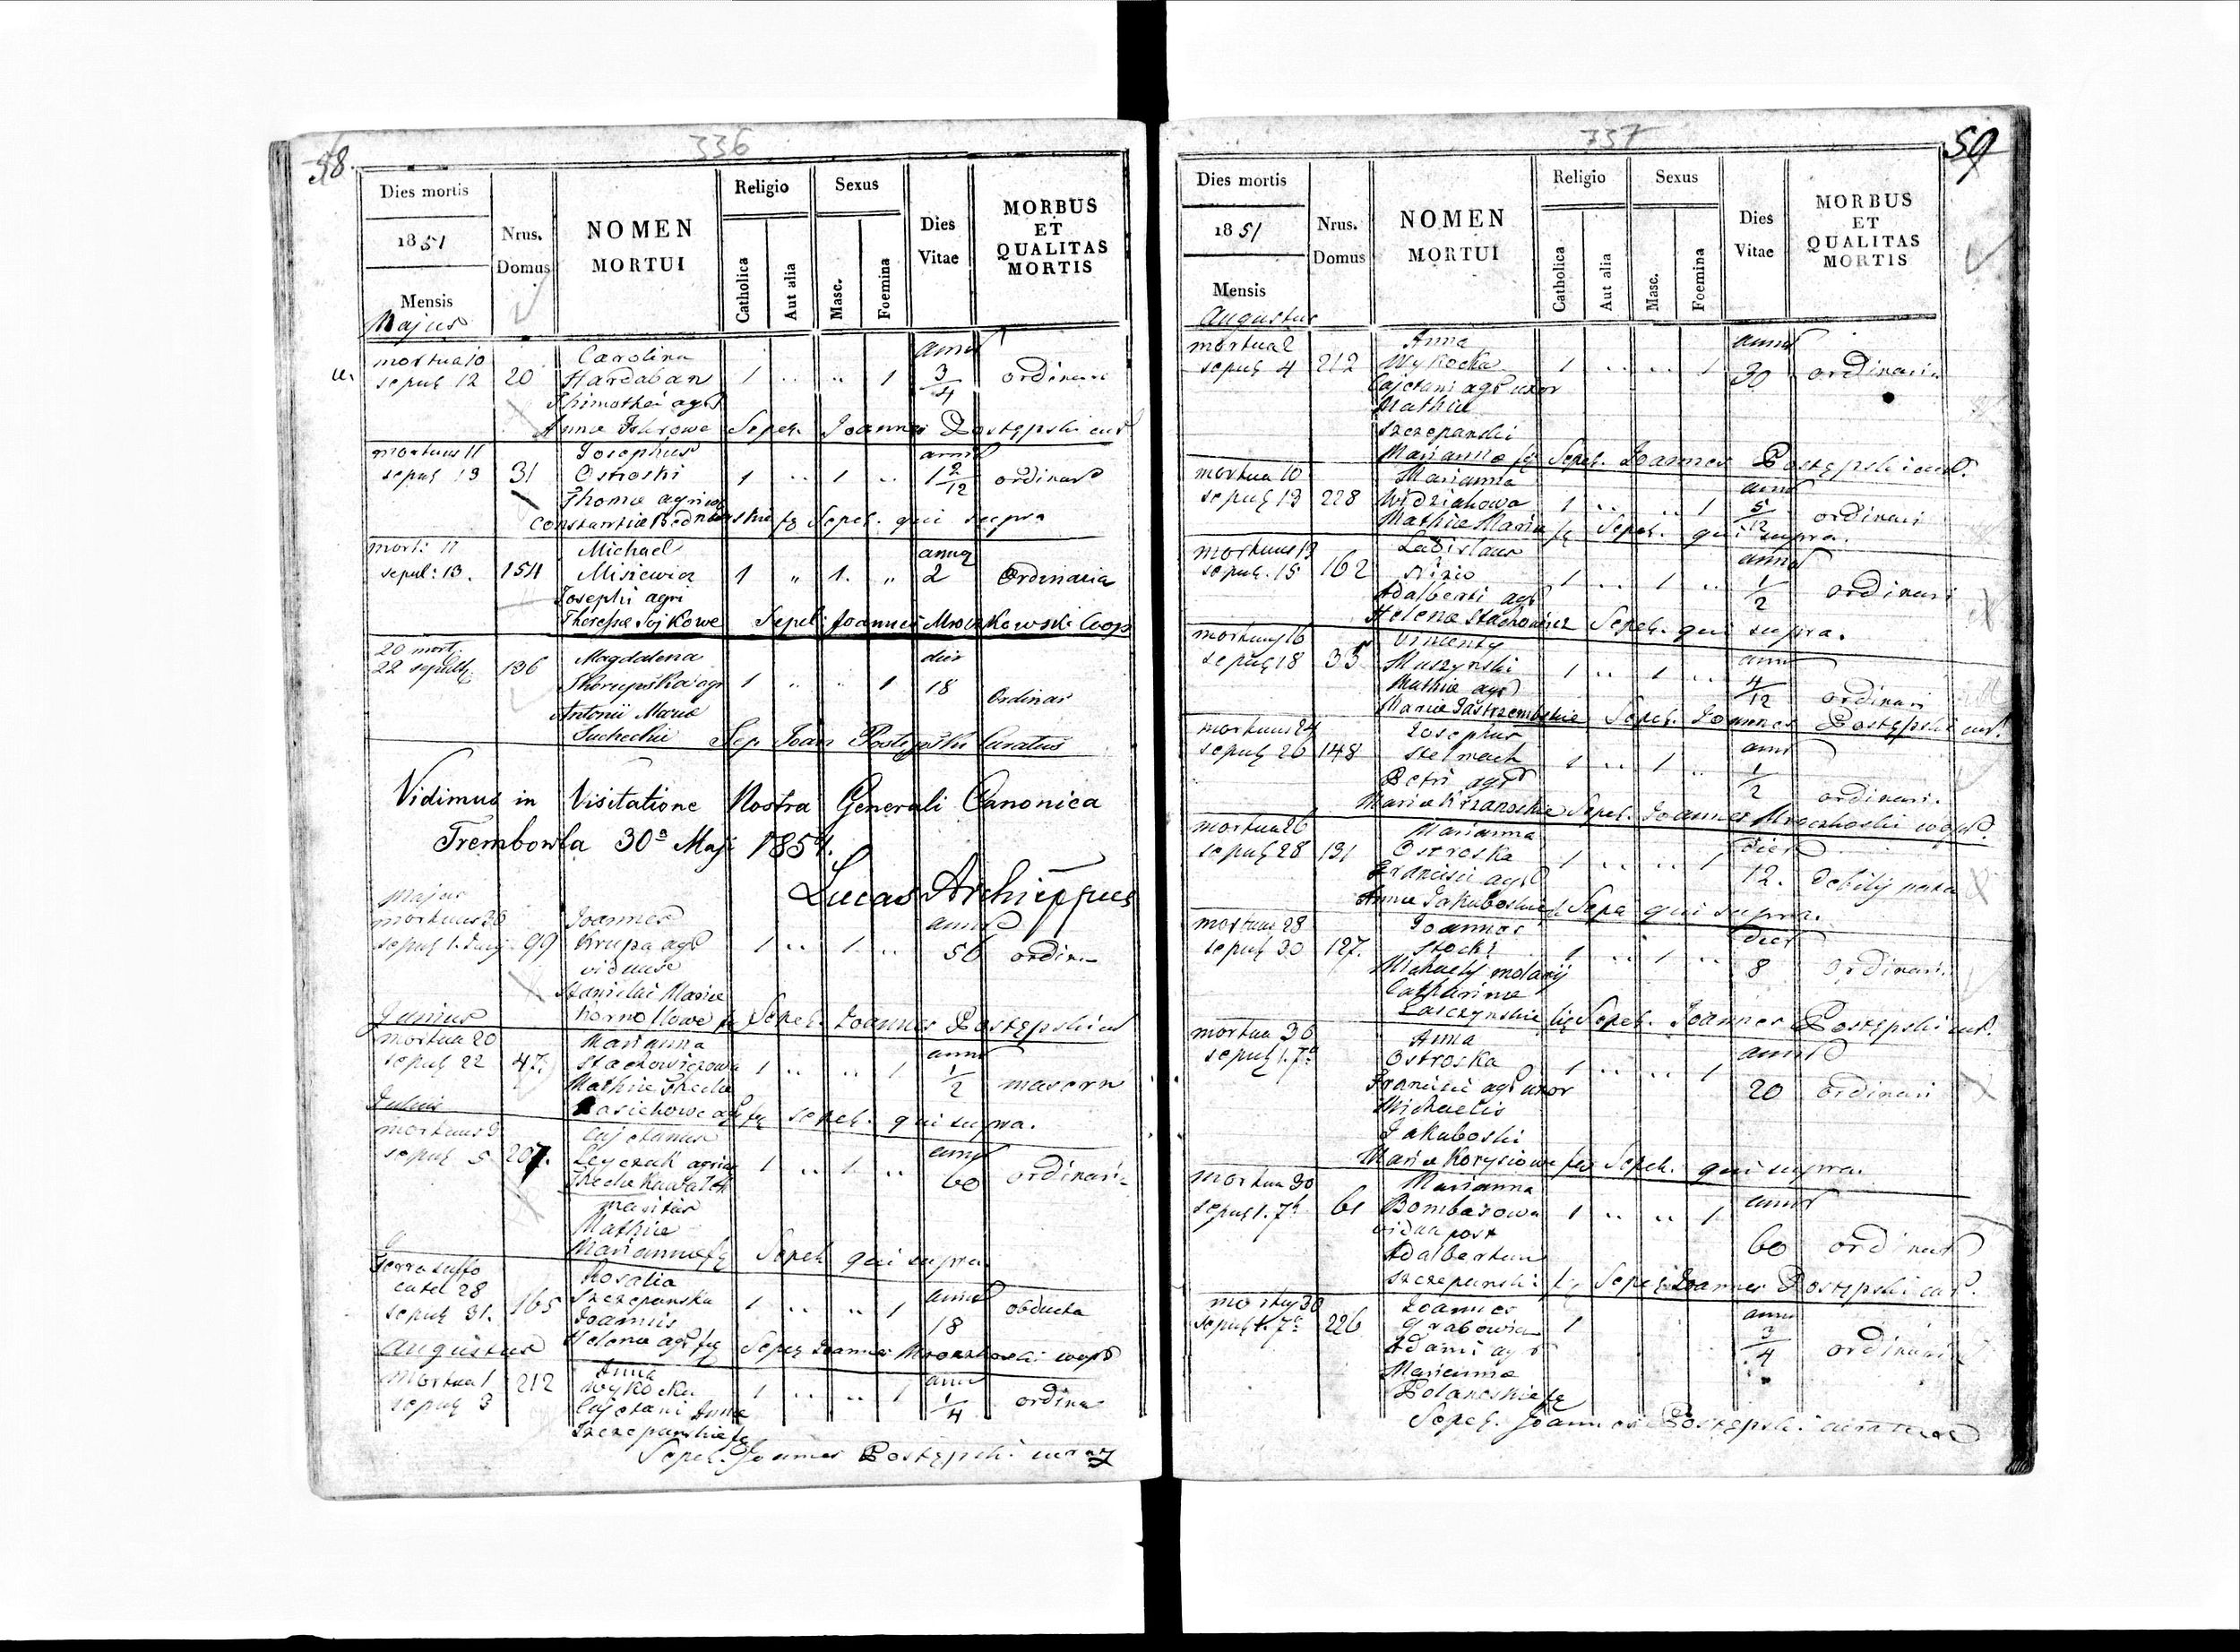 58.
336
Dies mortis
1851
Mensis
Majus
Nrus. Domus
NOMEN MORTUI
Religio
Catholica
Aut alia
Sexus
Masc.
Foemina
Dies Vitae
MORBUS ET QUALITAS MORTIS
mortua 10 Carolina anni
sepul 12 20 Hardaban 1 .. .. 1 3/4 ordinari
Thimothei agr
Annae Sepel. Joannes Postępski cur
mortuus 11 Josephus anni
sepul 13 31 Ostroski 1 .. 1 .. 1 2/12 ordinar
Thomae agric
Constantiae Bednarskie fę Sepel. qui supra
mort: 11 Michael annor
sepul: 13. 154 Misiewicz 1 " 1. " 2 Ordinaria
Josephi agri
Theresae Sojkowe Sepel: Joannes Mroczkowski Coop
20 mort. Magdalena dies
22 sepulta 136 agr 1 .. .. 1 18 Ordinar
Antonii Mariae
Suchechie Sep. Joan Postępski Curatus
Vidimus in Visitatione Nostra Generali Canonica
Trembowla 30a Maji 1854.
Lucas Archieppus
Majus
mortuus 30 Joannes anni
sepul 1. Junij 99 Krupa agr 1 .. 1 .. 56 ordin
viduus
Stanislai Mariae
Junius Kornollowe fę Sepel. Joannes Postępski cur
mortua 20 Marianna anni
sepul 22 47. Stachowiczowa 1 .. .. 1 1/2 macern
Mathiae Theclae
Julius Basichowe agr fę sepel. qui supra.
mortuus 3 Cajetanus anni
sepul 5 207. Leyczak agric 1 .. 1 .. 60 ordinari
Theclae Kawalek
maritus
Mathiae
Mariannae fę Sepel qui supra
Terra suffo
catd 28 Rosalia anni
sepul 31. 165 Szczepanska 1 .. .. 1 18 obducta
Joannis
Augustus Helenae agr fę Sepel Joannes Mroczkoski coopr
mortua 1 Anna anni
sepul 3 212 Wykocka 1 .. .. 1 1/4 ordina
Cajetani Annae
Szczepanskie fę
Sepel. Joannes Postępski
59
337
Dies mortis
1851
Mensis
Augustus
Nrus. Domus
NOMEN MORTUI
Religio
Catholica
Aut alia
Sexus
Masc.
Foemina
Dies Vitae
MORBUS ET QUALITAS MORTIS
mortua 2 Anna anni
sepul 4 212 Wykocka 1 .. .. 1 30 ordinaria
Cajetani agr uxor
Mathiae
Szczepanski
Mariannae fę Sepel. Joannes Postępski cur.
mortua 10 Marianna anni
sepul 13 228 Widziahowa 1 .. .. 1 5/12 ordinari
Mathiae Maria fę Sepel. qui supra.
mortuus 13 Ladislaus anni
sepul. 15 162 1 .. 1 .. 1/2 ordinari
Adalberti agr
Helenae Stachowicz Sepel. qui supra.
mortuus 16 Vincenty anni
sepul 18 35 Muszynski 1 .. 1 .. 4/12 ordinari
Mathiae agr
Mariae Jastrzembskie Sepel. Joannes Postępski cur.
mortuus 24 Josephus anni
sepul 26 148 Stelmach 1 .. 1 .. 1/2 ordinari.
Petri agr
Mariae Krzanoskie Sepel. Joannes Mroczkoski coopr.
mortua 26 Marianna dies
sepul 28 131 Ostroska 1 .. .. 1 12. debilij nata
Francisci agr
Annae Jakuboskie fę Sepe qui supra.
mortuus 28 Joannes dies
sepul 30 127. Stocki 1 .. 1 .. 8 ordinari.
Michaely molarij
Catharinae
Laszczynskie lię Sepel. Joannes Postępski cur.
mortua 30 Anna anni
sepul 1. 7a Ostroska 1 .. .. 1 20 ordinari
Francisci agr uxor
Michaelis
Jakuboski
Mariae Korysiowe fę Sepel. qui supra.
mortua 30 Marianna anni
sepul 1. 7a 61 Bombasowa 1 .. .. 1 60 ordinar
vidua post
Adalbertum
Szczepanski lę Sepel Joannes Postępski cur.
mortuy 30 Joannes anni
sepul 1. 7a 226 Grabowicz 1 3/4 ordinari
Adami agr
Mariannae
Polanoskie fę
Sepel. Joannes Postępski curatus